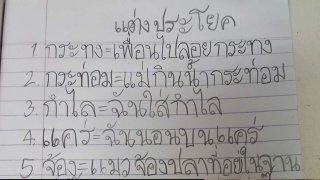 แต่งประโยค
1. กระทง=เพื่อนไปลอยกระทง
2. กระท่อม=แม่กินน้ำกระท่อม
3. กำไล=ฉันใส่กำไล
4. แคร่=ฉันนอนบนแคร่
5. จ้อง=แมวจ้องปลาที่อยู่ในจาน